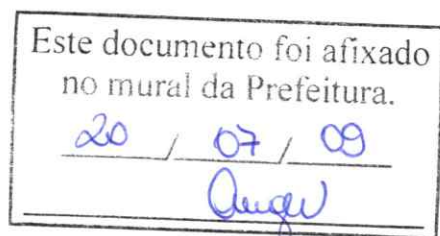 Este documento foi afixado
no mural da Prefeitura.
20 / 07 / 09